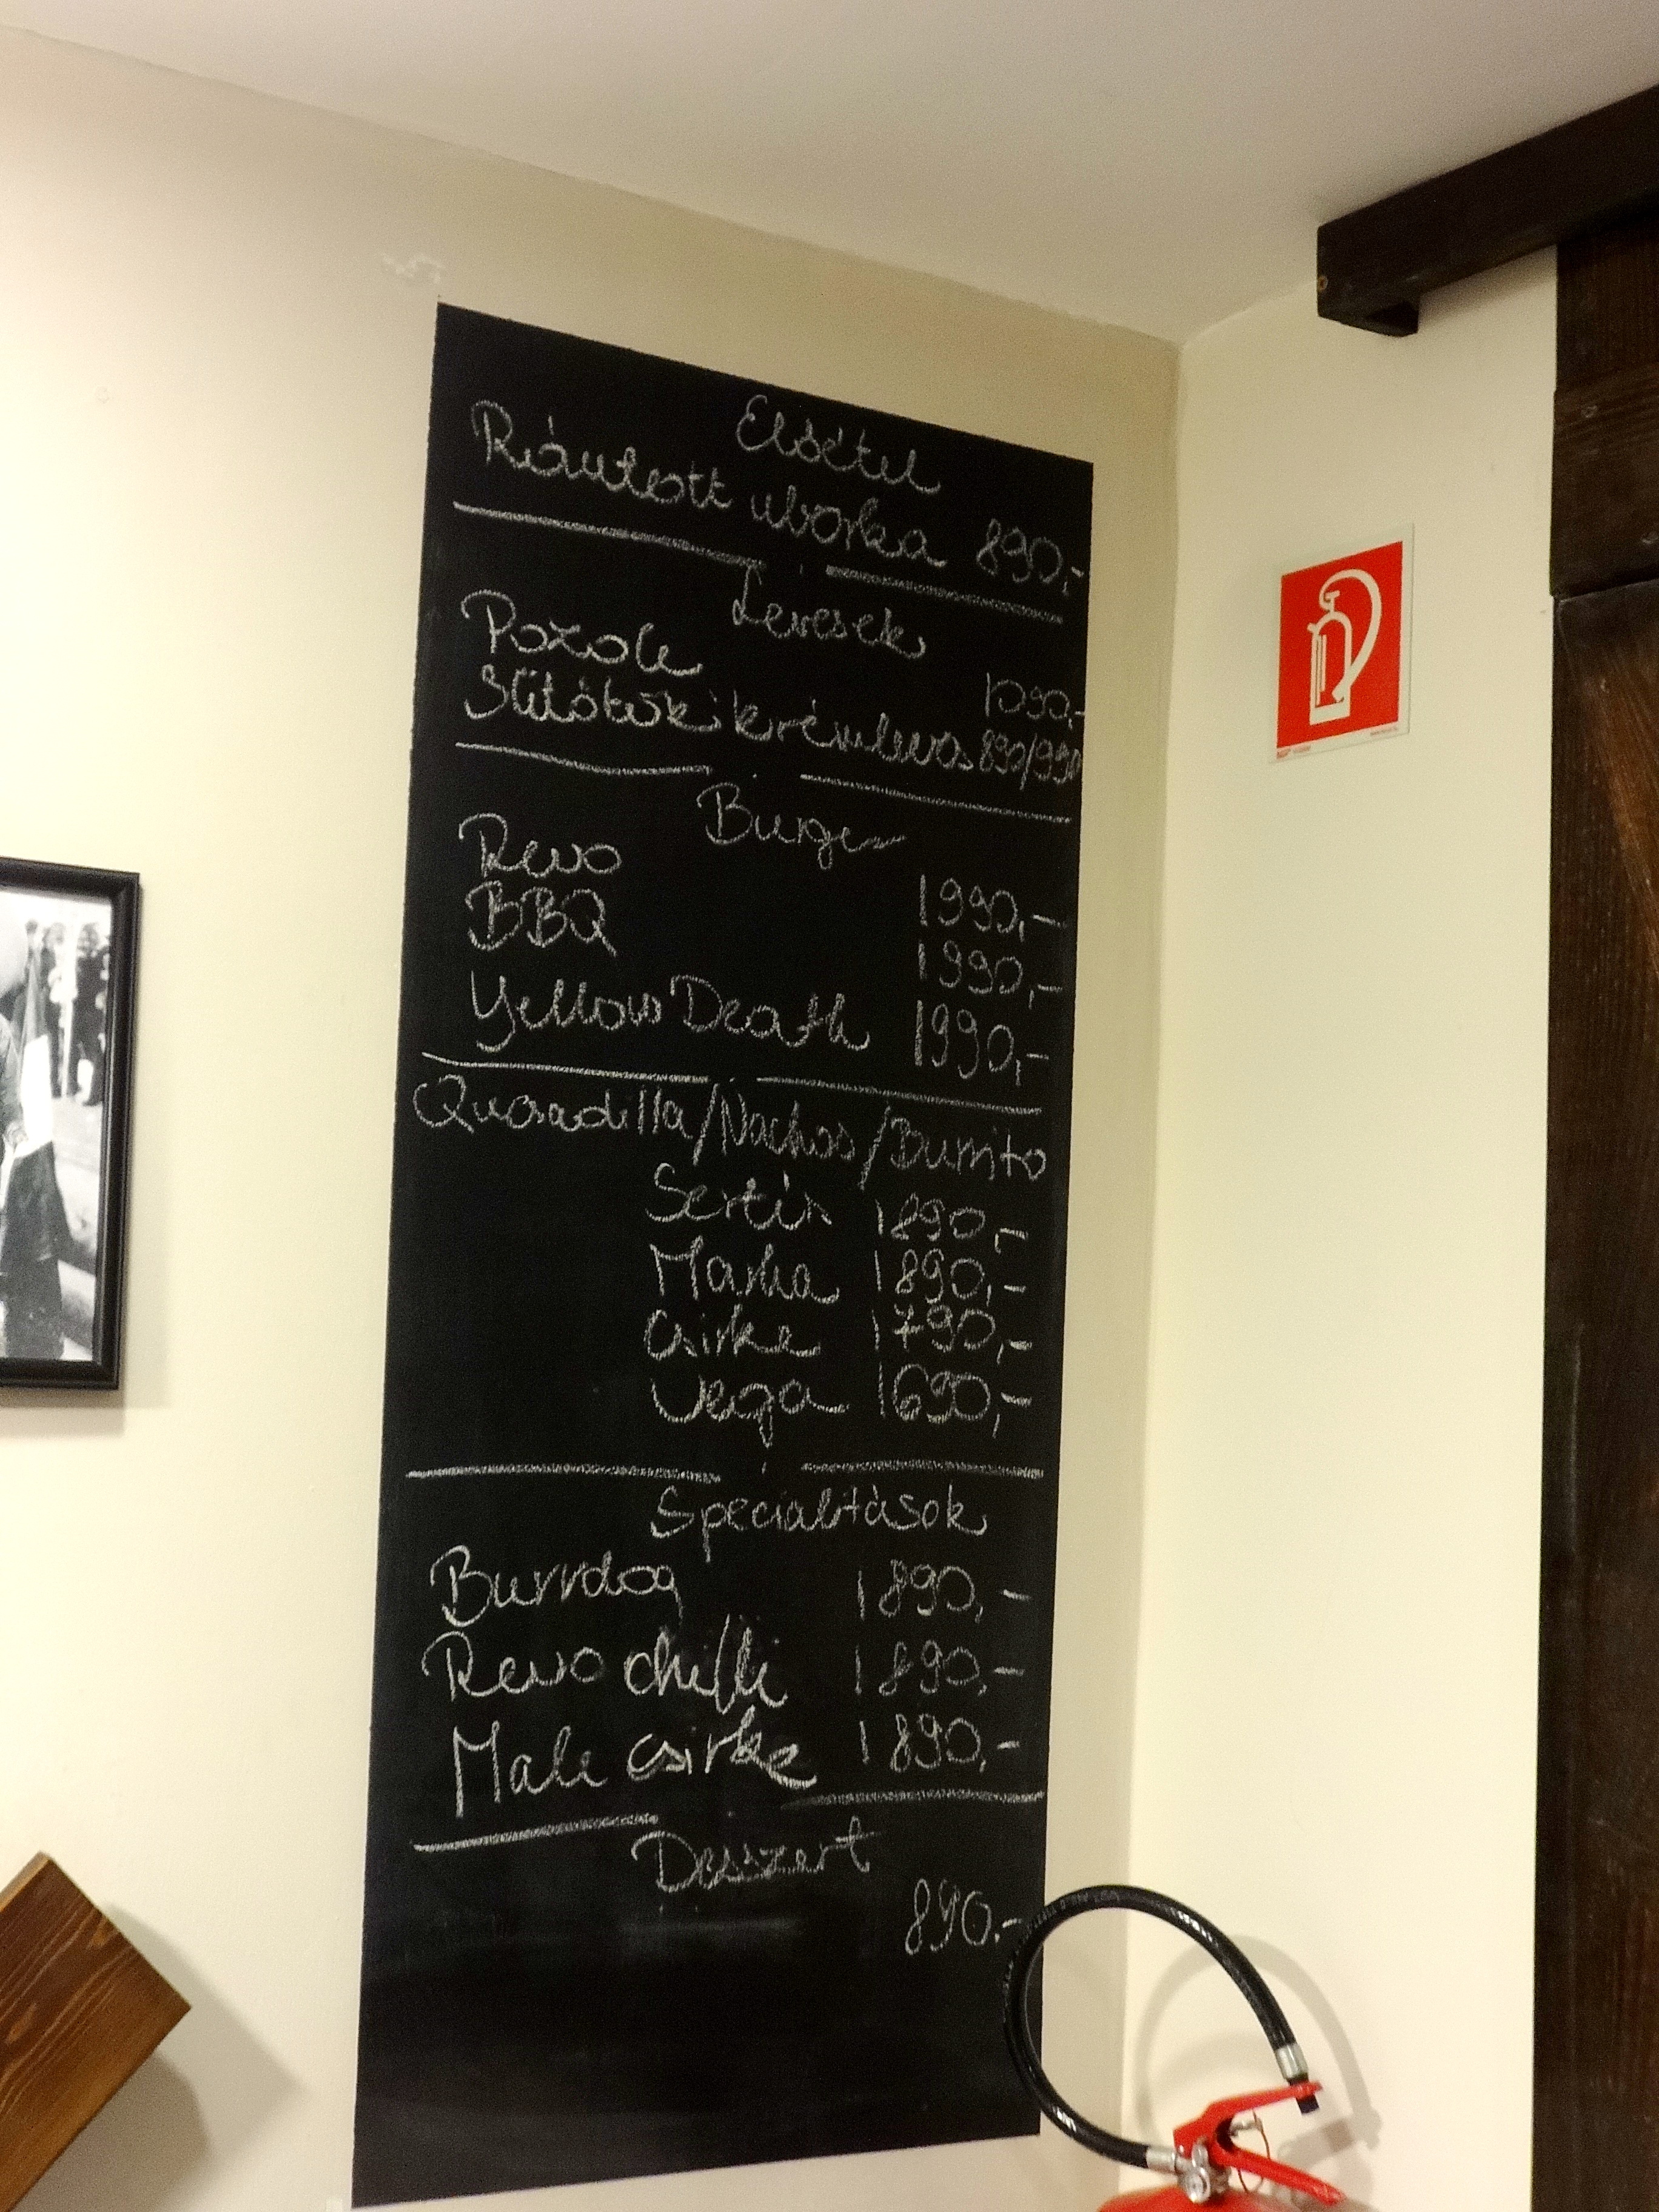 Előétel
Rántott uborka 890,-
Levesek
Pozole 1090,-
Sütőtökkrémleves 890/990
Burger
Revo 1990,-
BBQ 1990,-
Yellow Death 1990,-
Quesadilla/Nachos/Burrito
Sertés 1890,-
Marha 1890,-
Csirke 1790,-
Vega 1690,-
Specialitások
Burrdog 1890,-
Revo chilli 1890,-
Mole csirke 1890,-
Desszert
890.-